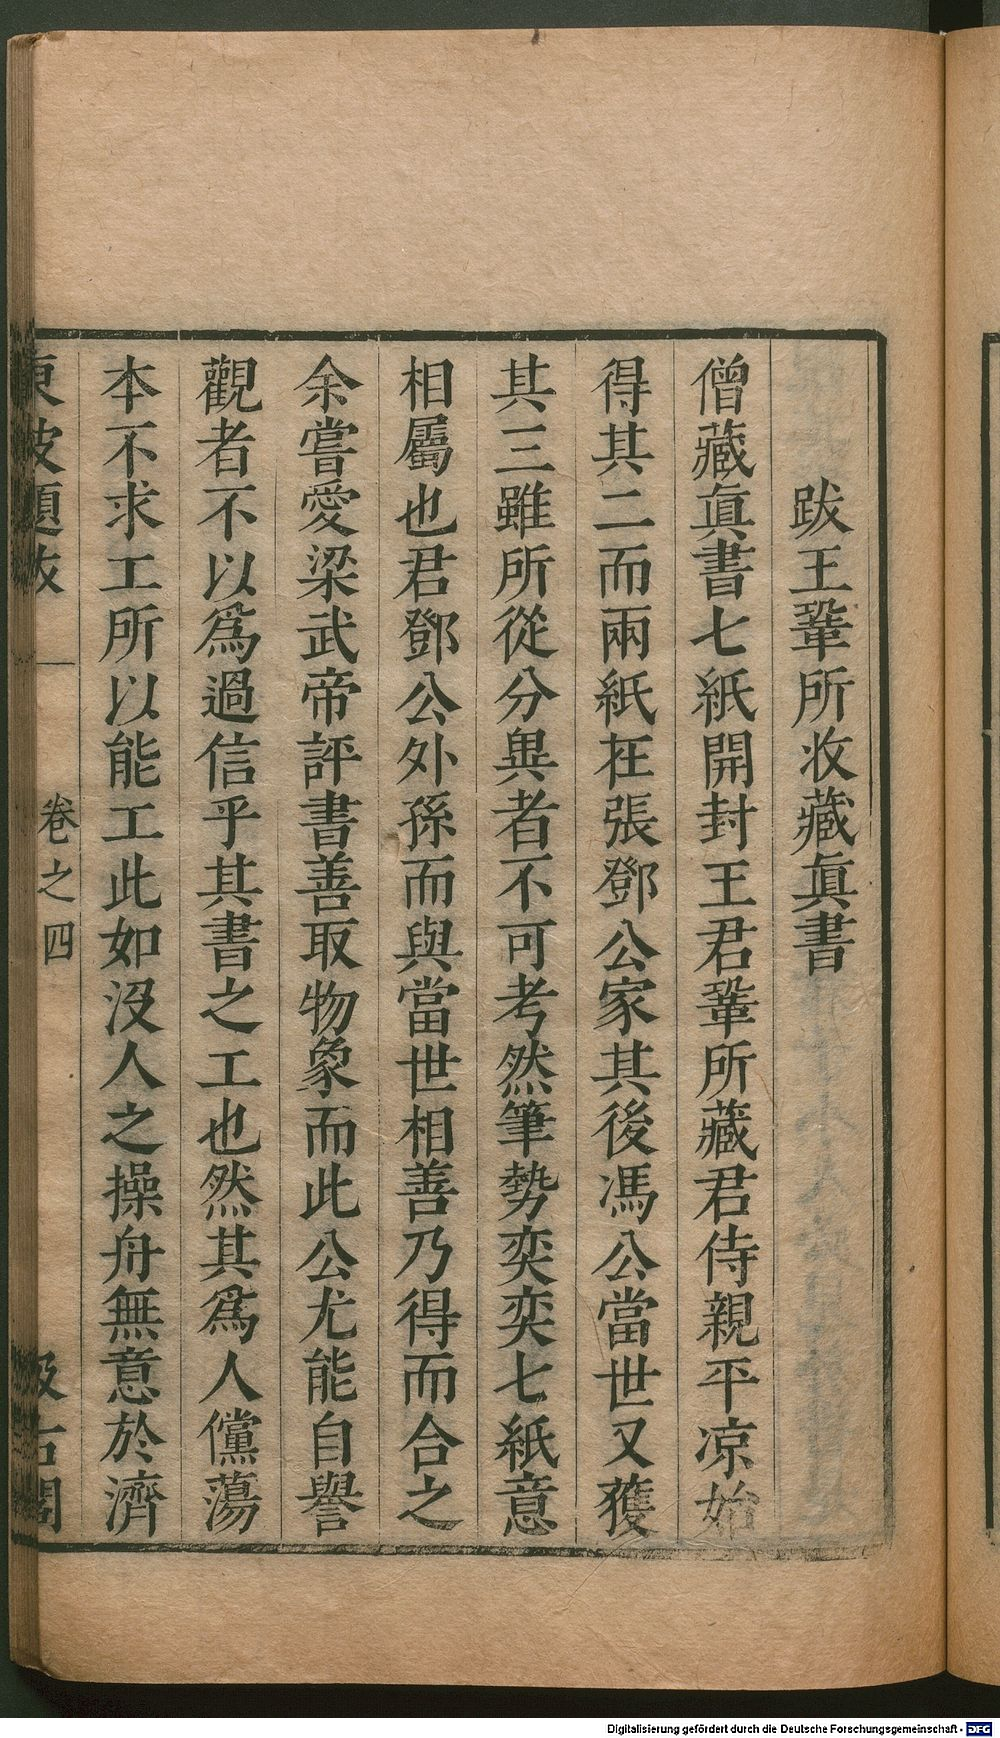 跋王鞏所收藏眞書
僧藏眞書七紙開封王君鞏所藏君侍親平凉始
得其二而兩紙在張鄧公家其後馮公當世又獲
其三雖所從分異者不可考然筆勢奕奕七紙意
相屬也君鄧公外孫而與當世相善乃得而合之
余嘗愛梁武帝評書善取物象而此公尤能自譽
觀者不以爲過信乎其書之工也然其爲人儻蕩
本不求工所以能工此如沒人之操舟無意於濟
東坡題跋 卷之四 汲古閣
Digitalisierung gefördert durch die Deutsche Forschungsgemeinschaft - DFG